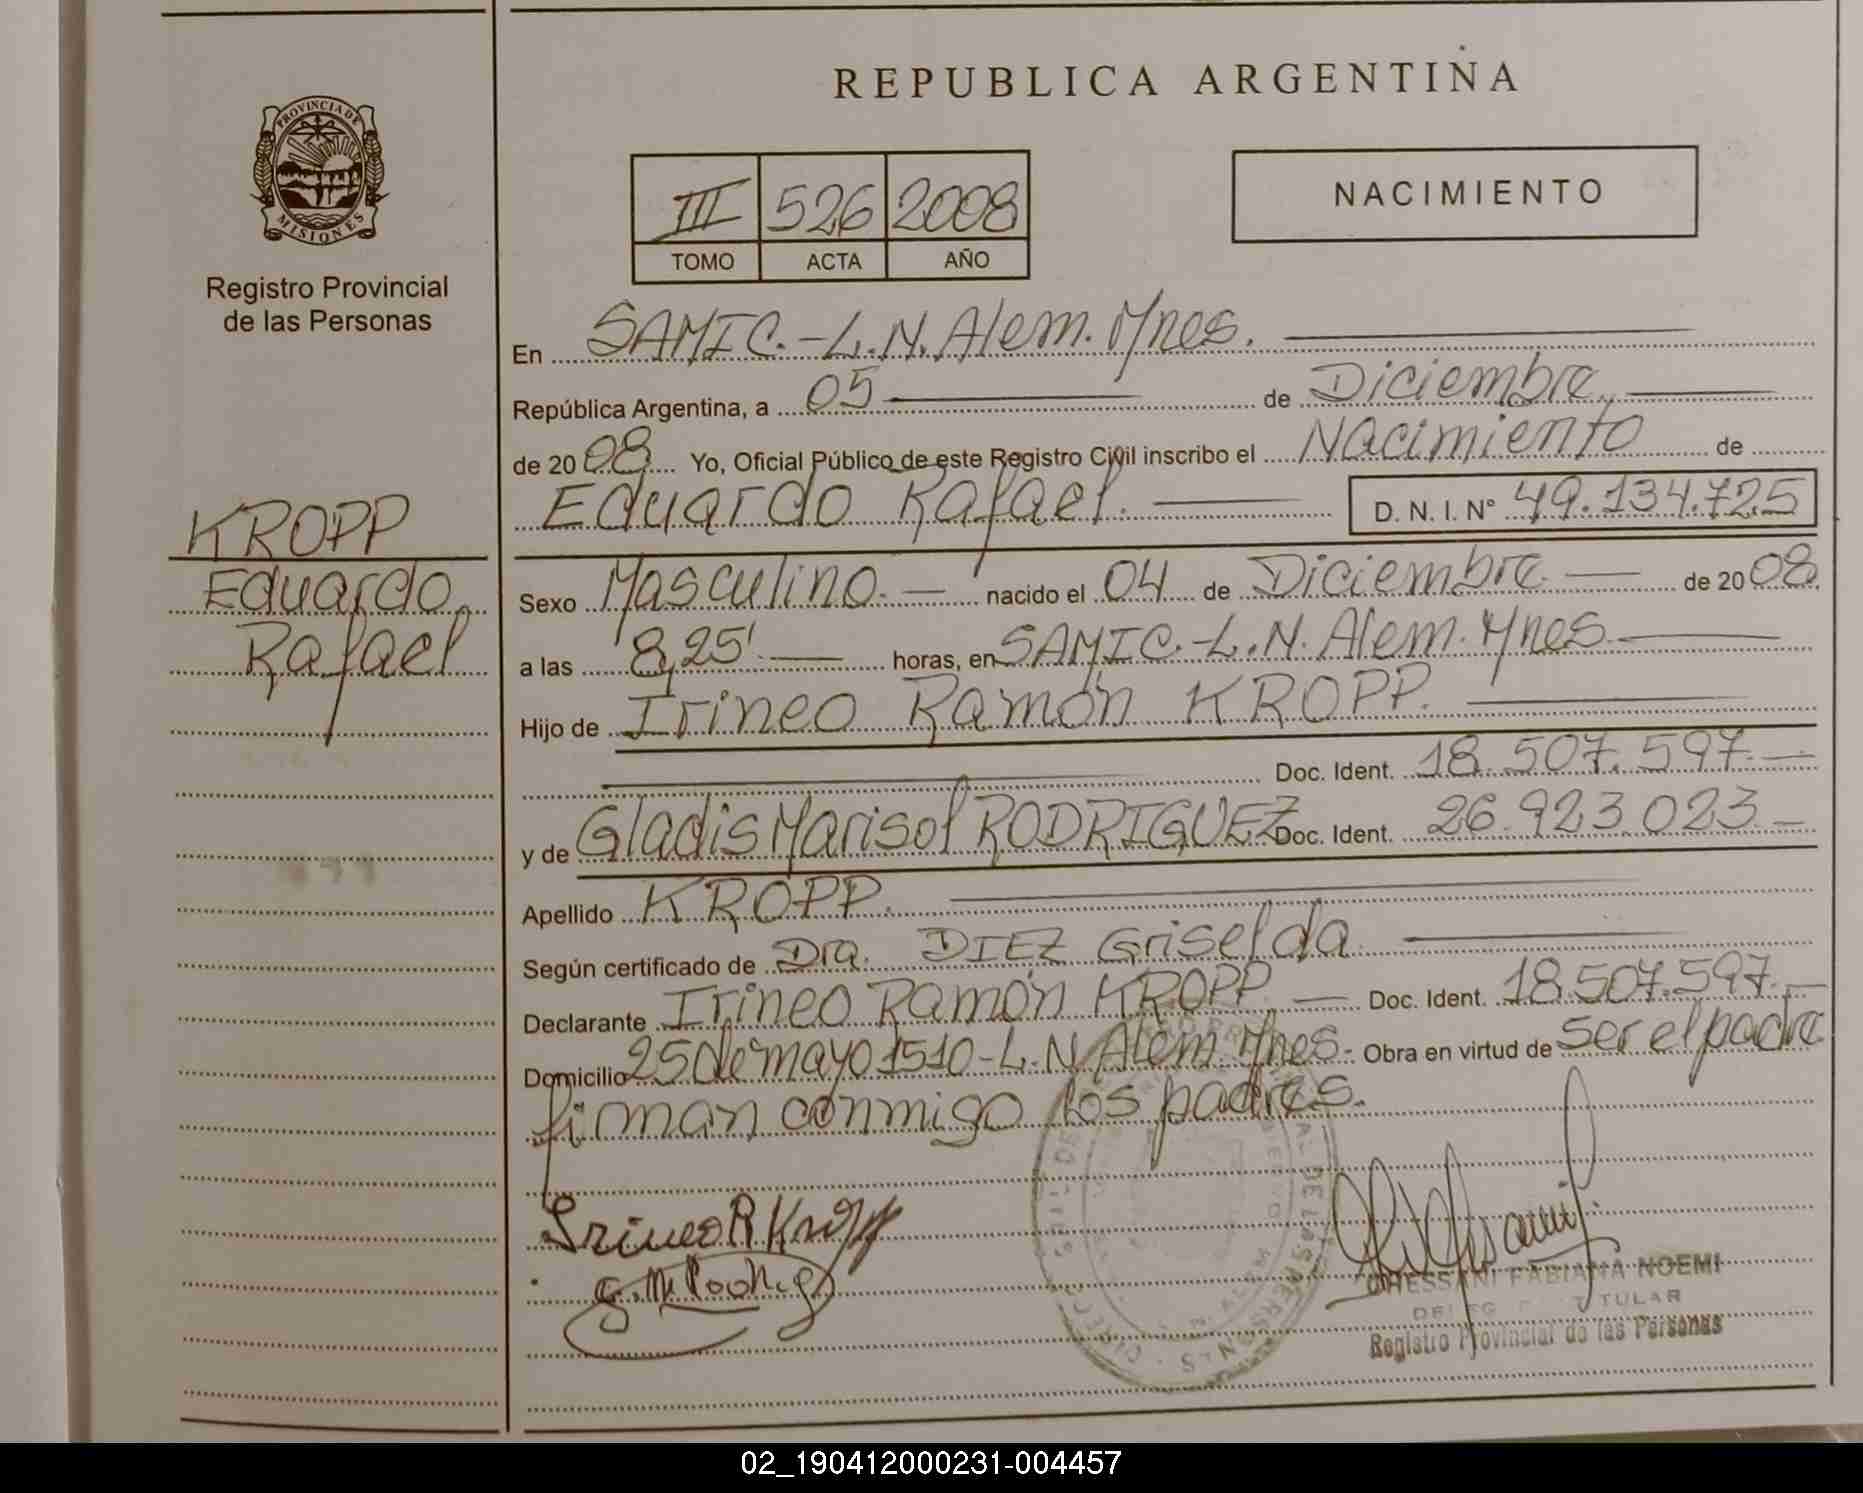 REPUBLICA ARGENTINA
PROVINCIA DE
MISIONES
Registro Provincial
de las Personas
III 526 2008
TOMO ACTA AÑO
NACIMIENTO
En SAMIC.-L.N.Alem.Mnes.
República Argentina, a 05 de Diciembre
de 2008 Yo, Oficial Público de este Registro Civil inscribo el Nacimiento de
Eduardo Rafael. D. N. I. N° 49.134.725
KROPP
Eduardo
Rafael
Sexo Masculino. nacido el 04 de Diciembre de 2008
a las 8,25' horas, en SAMIC.-L.N.Alem.Mnes.
Hijo de Irineo Ramón KROPP.
Doc. Ident. 18.507.597.-
y de Gladis Marisol RODRIGUEZ Doc. Ident. 26.923.023-
Apellido KROPP.
Según certificado de Dra. DIEZ Griselda
Declarante Irineo Ramón KROPP Doc. Ident. 18.507.597.-
Domicilio 25 de mayo 1510-L.N.Alem.Mnes.- Obra en virtud de ser el padre
firman conmigo los padres.
Irineo R Kropp
FABIANA NOEMI
TITULAR
Registro Provincial de las Personas
02_190412000231-004457